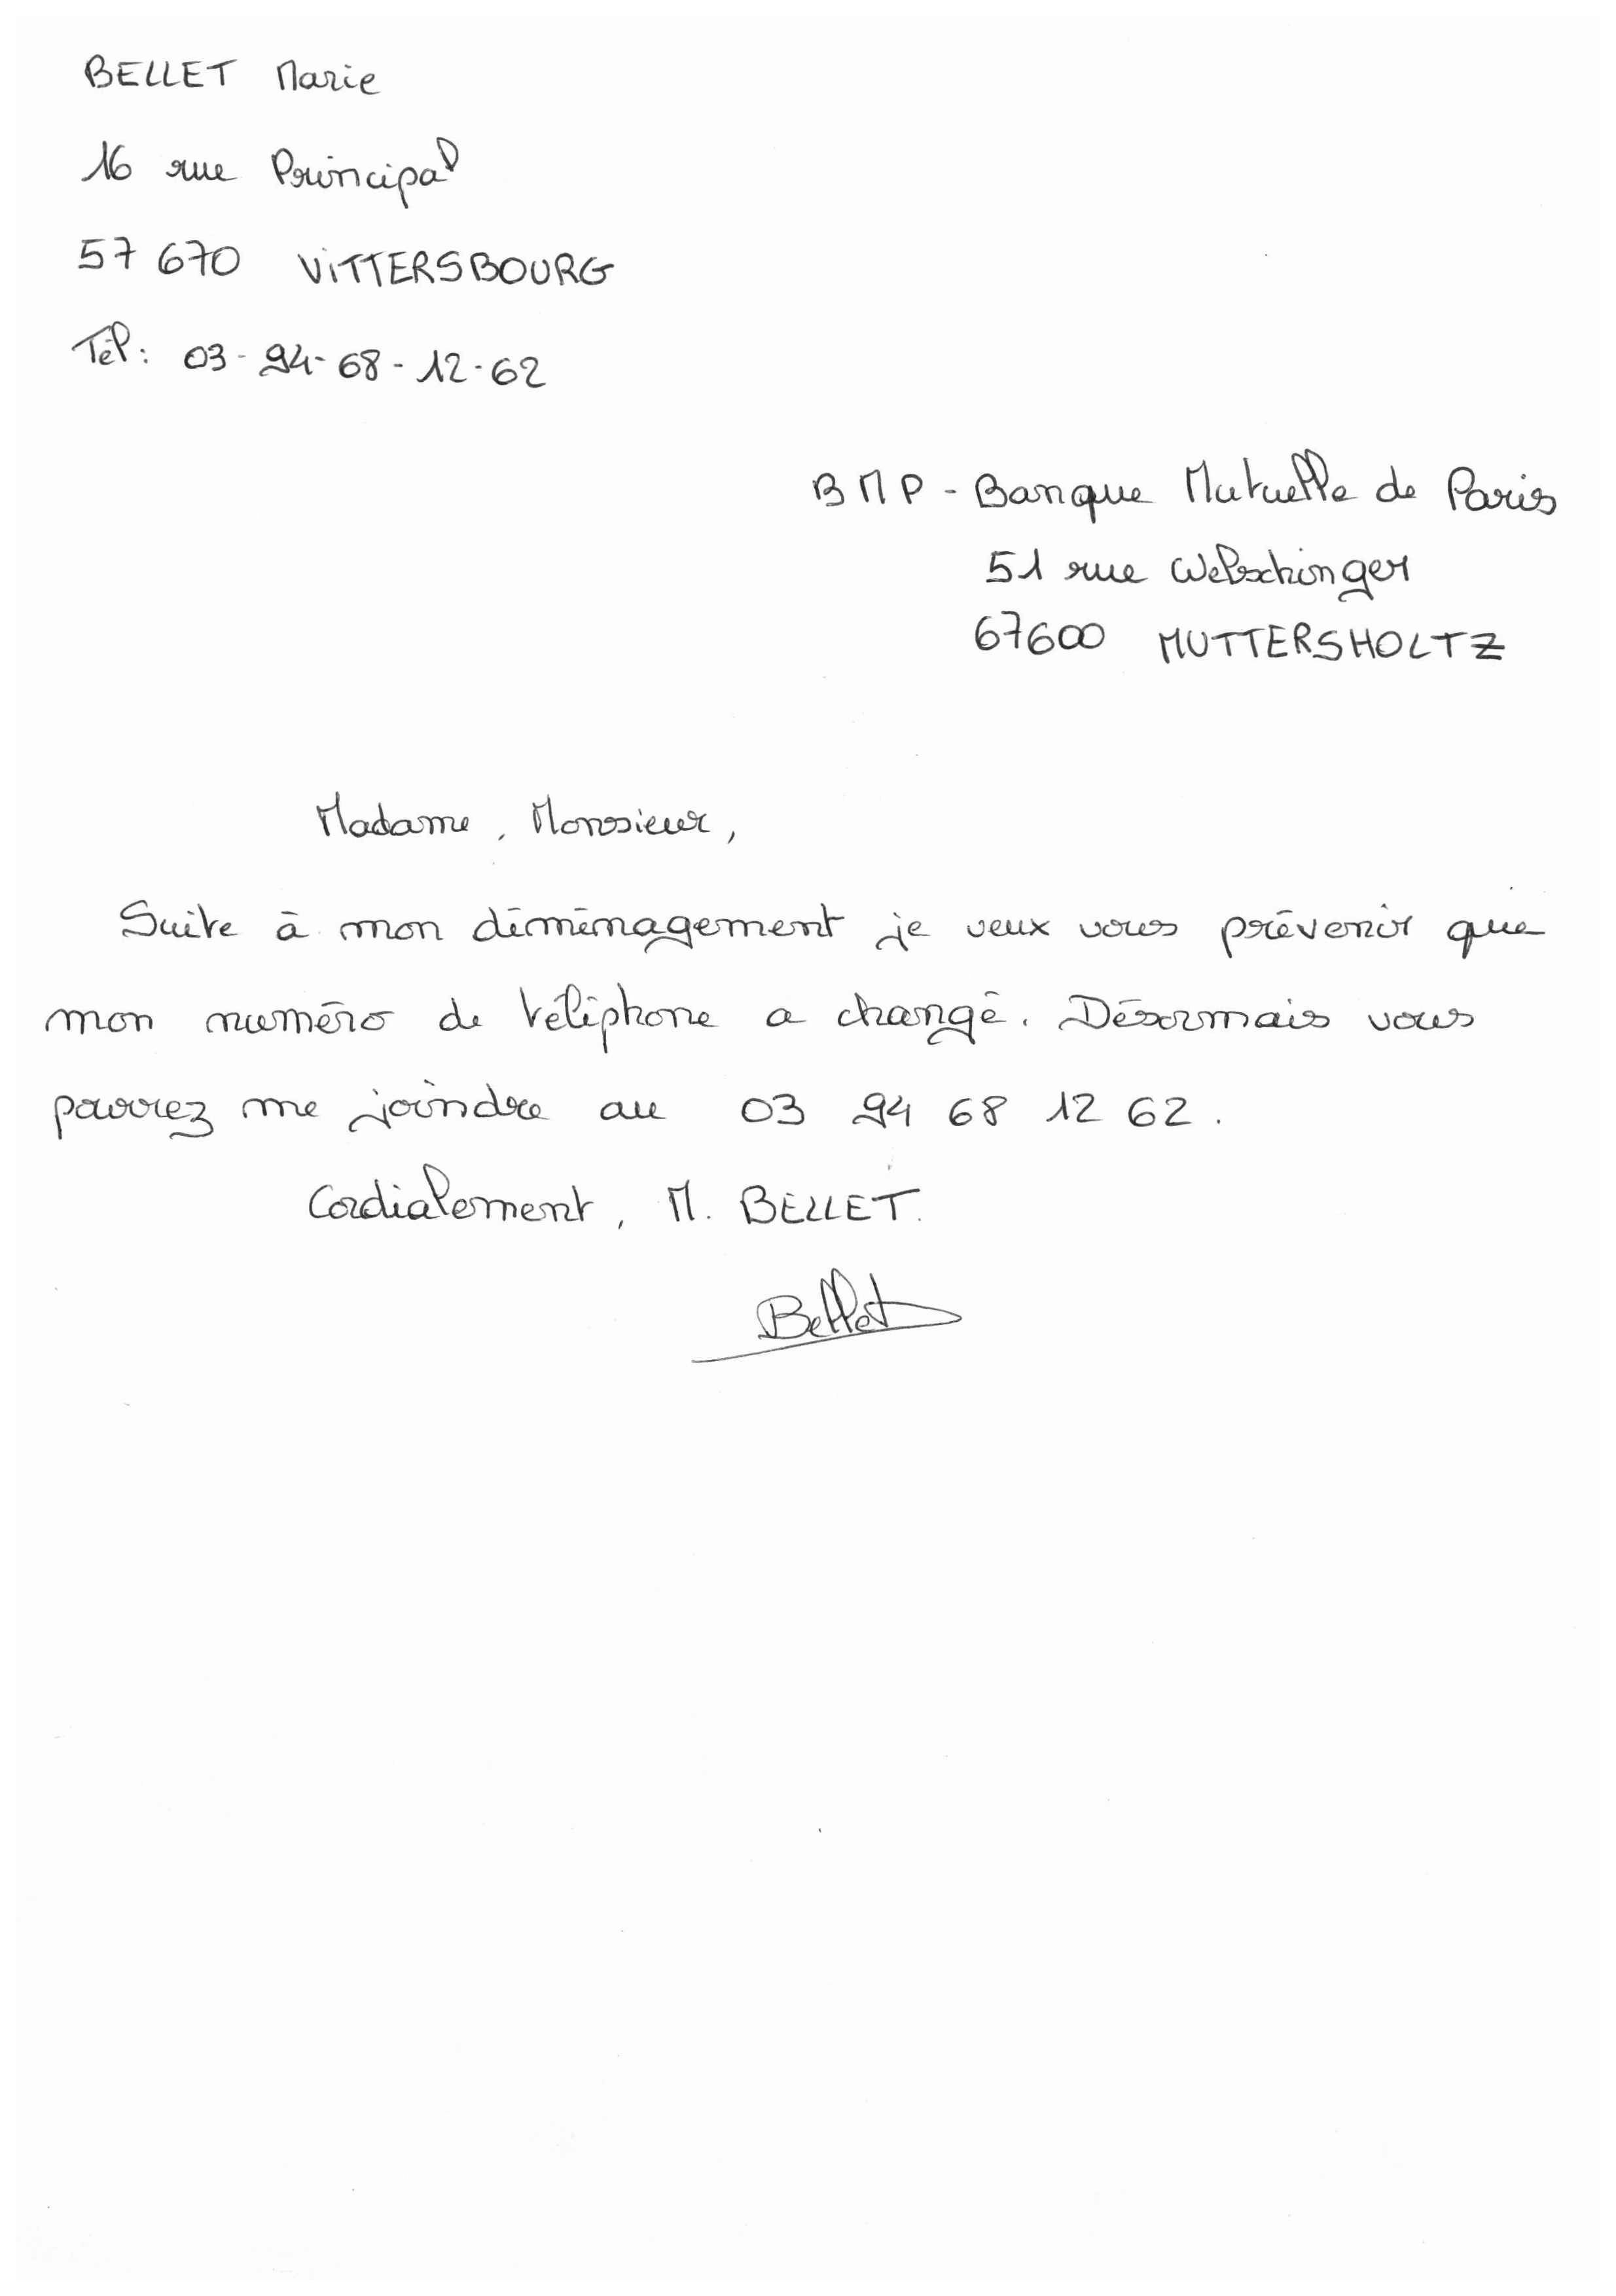 BELLET Marie
16 rue Principal
57 670 VITTERSBOURG
Tél: 03-94-68-12-62
BMP - Banque Mutuelle de Paris
51 rue Welschinger
67600 MUTTERSHOLTZ
Madame, Monsieur,
Suite à mon déménagement je veux vous prévenir que
mon numéro de téléphone a changé. Désormais vous
pourrez me joindre au 03 94 68 12 62.
Cordialement, M. BELLET.
Bellet